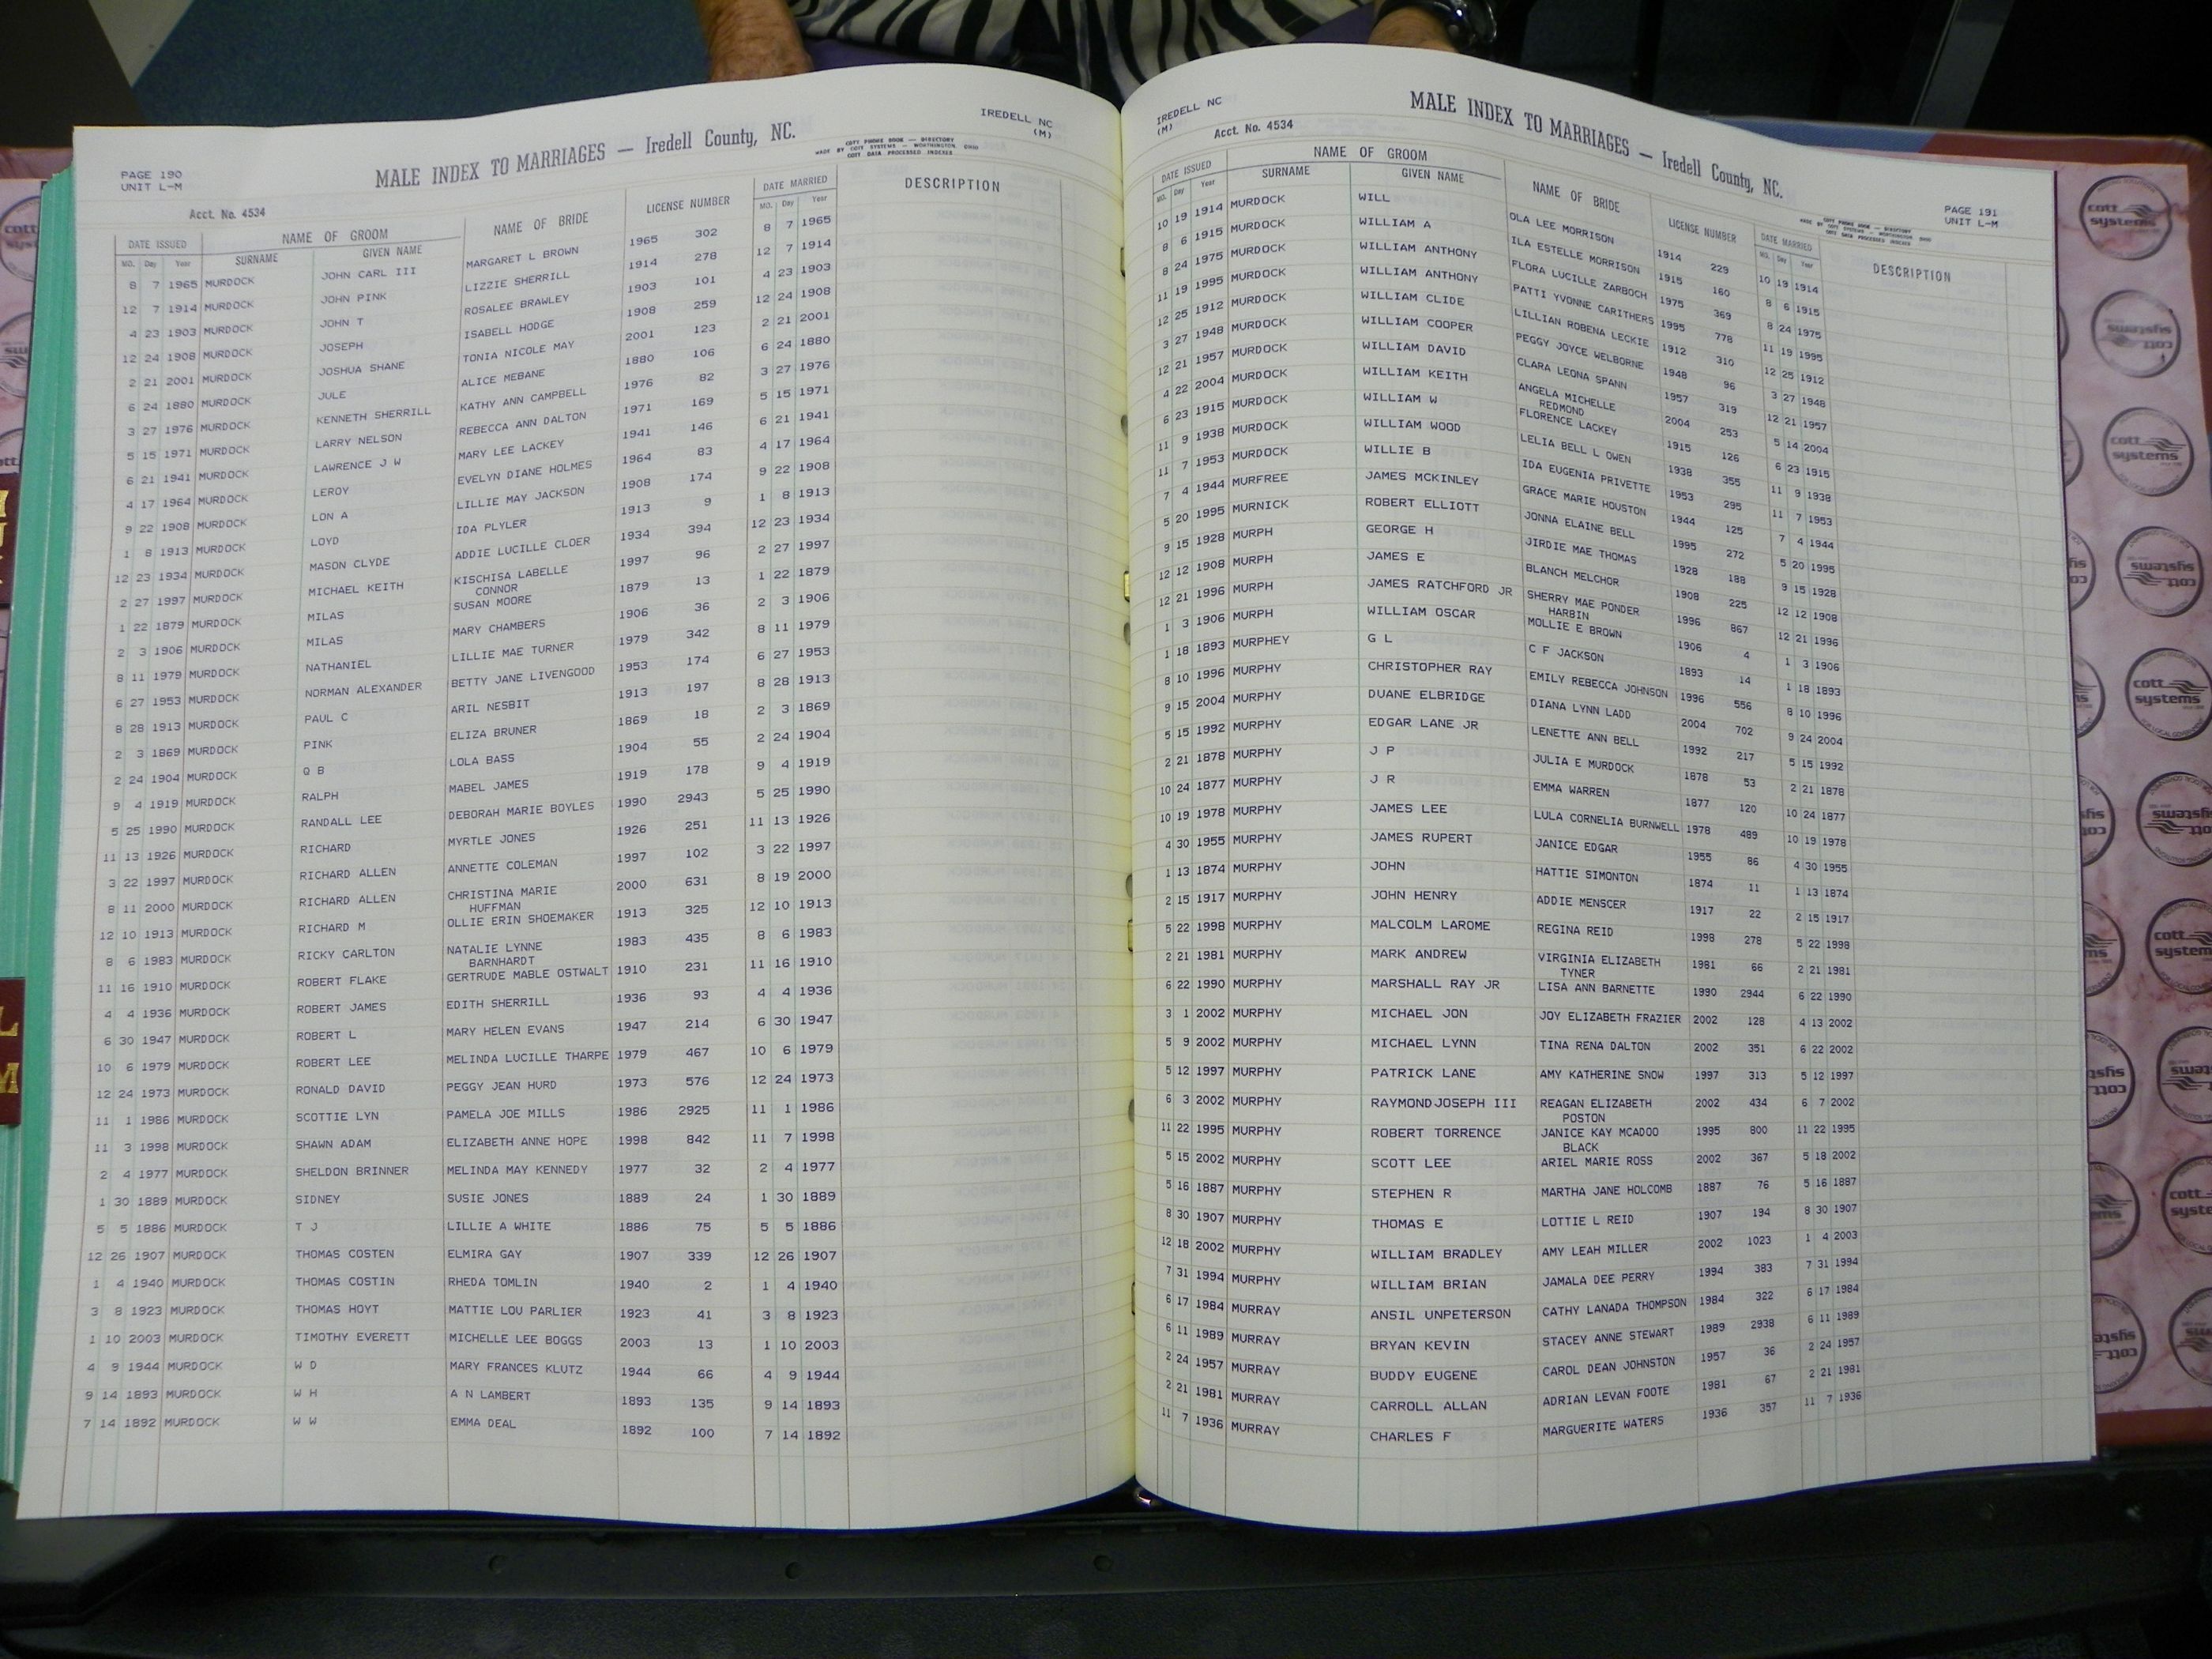 PAGE 190
UNIT L-M
MALE INDEX TO MARRIAGES — Iredell County, NC.
IREDELL NC
(M)
COTT PHONE BOOK — DIRECTORY
MADE BY COTT SYSTEMS — WORTHINGTON, OHIO
COTT DATA PROCESSED INDEXES
Acct. No. 4534
DATE ISSUED NAME OF GROOM NAME OF BRIDE LICENSE NUMBER DATE MARRIED DESCRIPTION
MO. Day Year SURNAME GIVEN NAME MO. Day Year
8 7 1965 MURDOCK JOHN CARL III MARGARET L BROWN 1965 302 8 7 1965
12 7 1914 MURDOCK JOHN PINK LIZZIE SHERRILL 1914 278 12 7 1914
4 23 1903 MURDOCK JOHN T ROSALEE BRAWLEY 1903 101 4 23 1903
12 24 1908 MURDOCK JOSEPH ISABELL HODGE 1908 259 12 24 1908
2 21 2001 MURDOCK JOSHUA SHANE TONIA NICOLE MAY 2001 123 2 21 2001
6 24 1880 MURDOCK JULE ALICE MEBANE 1880 106 6 24 1880
3 27 1976 MURDOCK KENNETH SHERRILL KATHY ANN CAMPBELL 1976 82 3 27 1976
5 15 1971 MURDOCK LARRY NELSON REBECCA ANN DALTON 1971 169 5 15 1971
6 21 1941 MURDOCK LAWRENCE J W MARY LEE LACKEY 1941 146 6 21 1941
4 17 1964 MURDOCK LEROY EVELYN DIANE HOLMES 1964 83 4 17 1964
9 22 1908 MURDOCK LON A LILLIE MAY JACKSON 1908 174 9 22 1908
1 8 1913 MURDOCK LOYD IDA PLYLER 1913 9 1 8 1913
12 23 1934 MURDOCK MASON CLYDE ADDIE LUCILLE CLOER 1934 394 12 23 1934
2 27 1997 MURDOCK MICHAEL KEITH KISCHISA LABELLE 1997 96 2 27 1997
CONNOR
1 22 1879 MURDOCK MILAS SUSAN MOORE 1879 13 1 22 1879
2 3 1906 MURDOCK MILAS MARY CHAMBERS 1906 36 2 3 1906
8 11 1979 MURDOCK NATHANIEL LILLIE MAE TURNER 1979 342 8 11 1979
6 27 1953 MURDOCK NORMAN ALEXANDER BETTY JANE LIVENGOOD 1953 174 6 27 1953
8 28 1913 MURDOCK PAUL C ARIL NESBIT 1913 197 8 28 1913
2 3 1869 MURDOCK PINK ELIZA BRUNER 1869 18 2 3 1869
2 24 1904 MURDOCK Q B LOLA BASS 1904 55 2 24 1904
9 4 1919 MURDOCK RALPH MABEL JAMES 1919 178 9 4 1919
5 25 1990 MURDOCK RANDALL LEE DEBORAH MARIE BOYLES 1990 2943 5 25 1990
11 13 1926 MURDOCK RICHARD MYRTLE JONES 1926 251 11 13 1926
3 22 1997 MURDOCK RICHARD ALLEN ANNETTE COLEMAN 1997 102 3 22 1997
8 11 2000 MURDOCK RICHARD ALLEN CHRISTINA MARIE 2000 631 8 19 2000
HUFFMAN
12 10 1913 MURDOCK RICHARD M OLLIE ERIN SHOEMAKER 1913 325 12 10 1913
8 6 1983 MURDOCK RICKY CARLTON NATALIE LYNNE 1983 435 8 6 1983
BARNHARDT
11 16 1910 MURDOCK ROBERT FLAKE GERTRUDE MABLE OSTWALT 1910 231 11 16 1910
4 4 1936 MURDOCK ROBERT JAMES EDITH SHERRILL 1936 93 4 4 1936
6 30 1947 MURDOCK ROBERT L MARY HELEN EVANS 1947 214 6 30 1947
10 6 1979 MURDOCK ROBERT LEE MELINDA LUCILLE THARPE 1979 467 10 6 1979
12 24 1973 MURDOCK RONALD DAVID PEGGY JEAN HURD 1973 576 12 24 1973
11 1 1986 MURDOCK SCOTTIE LYN PAMELA JOE MILLS 1986 2925 11 1 1986
11 3 1998 MURDOCK SHAWN ADAM ELIZABETH ANNE HOPE 1998 842 11 7 1998
2 4 1977 MURDOCK SHELDON BRINNER MELINDA MAY KENNEDY 1977 32 2 4 1977
1 30 1889 MURDOCK SIDNEY SUSIE JONES 1889 24 1 30 1889
5 5 1886 MURDOCK T J LILLIE A WHITE 1886 75 5 5 1886
12 26 1907 MURDOCK THOMAS COSTEN ELMIRA GAY 1907 339 12 26 1907
1 4 1940 MURDOCK THOMAS COSTIN RHEDA TOMLIN 1940 2 1 4 1940
3 8 1923 MURDOCK THOMAS HOYT MATTIE LOU PARLIER 1923 41 3 8 1923
1 10 2003 MURDOCK TIMOTHY EVERETT MICHELLE LEE BOGGS 2003 13 1 10 2003
4 9 1944 MURDOCK W D MARY FRANCES KLUTZ 1944 66 4 9 1944
9 14 1893 MURDOCK W H A N LAMBERT 1893 135 9 14 1893
7 14 1892 MURDOCK W W EMMA DEAL 1892 100 7 14 1892
IREDELL NC
(M)
MALE INDEX TO MARRIAGES — Iredell County, NC.
PAGE 191
UNIT L-M
Acct. No. 4534
COTT PHONE BOOK — DIRECTORY
MADE BY COTT SYSTEMS — WORTHINGTON, OHIO
COTT DATA PROCESSED INDEXES
DATE ISSUED NAME OF GROOM NAME OF BRIDE LICENSE NUMBER DATE MARRIED DESCRIPTION
MO. Day Year SURNAME GIVEN NAME MO. Day Year
10 19 1914 MURDOCK WILL OLA LEE MORRISON 1914 229 10 19 1914
8 6 1915 MURDOCK WILLIAM A ILA ESTELLE MORRISON 1915 160 8 6 1915
8 24 1975 MURDOCK WILLIAM ANTHONY FLORA LUCILLE ZARBOCH 1975 369 8 24 1975
11 19 1995 MURDOCK WILLIAM ANTHONY PATTI YVONNE CARITHERS 1995 778 11 19 1995
12 25 1912 MURDOCK WILLIAM CLIDE LILLIAN ROBENA LECKIE 1912 310 12 25 1912
3 27 1948 MURDOCK WILLIAM COOPER PEGGY JOYCE WELBORNE 1948 96 3 27 1948
12 21 1957 MURDOCK WILLIAM DAVID CLARA LEONA SPANN 1957 319 12 21 1957
4 22 2004 MURDOCK WILLIAM KEITH ANGELA MICHELLE 2004 253 5 14 2004
REDMOND
6 23 1915 MURDOCK WILLIAM W FLORENCE LACKEY 1915 126 6 23 1915
11 9 1938 MURDOCK WILLIAM WOOD LELIA BELL L OWEN 1938 355 11 9 1938
11 7 1953 MURDOCK WILLIE B IDA EUGENIA PRIVETTE 1953 295 11 7 1953
7 4 1944 MURFREE JAMES MCKINLEY GRACE MARIE HOUSTON 1944 125 7 4 1944
5 20 1995 MURNICK ROBERT ELLIOTT JONNA ELAINE BELL 1995 272 5 20 1995
9 15 1928 MURPH GEORGE H JIRDIE MAE THOMAS 1928 188 9 15 1928
12 12 1908 MURPH JAMES E BLANCH MELCHOR 1908 225 12 12 1908
12 21 1996 MURPH JAMES RATCHFORD JR SHERRY MAE PONDER 1996 867 12 21 1996
HARBIN
1 3 1906 MURPH WILLIAM OSCAR MOLLIE E BROWN 1906 4 1 3 1906
1 18 1893 MURPHEY G L C F JACKSON 1893 14 1 18 1893
8 10 1996 MURPHY CHRISTOPHER RAY EMILY REBECCA JOHNSON 1996 556 8 10 1996
9 15 2004 MURPHY DUANE ELBRIDGE DIANA LYNN LADD 2004 702 9 24 2004
5 15 1992 MURPHY EDGAR LANE JR LENETTE ANN BELL 1992 217 5 15 1992
2 21 1878 MURPHY J P JULIA E MURDOCK 1878 53 2 21 1878
10 24 1877 MURPHY J R EMMA WARREN 1877 120 10 24 1877
10 19 1978 MURPHY JAMES LEE LULA CORNELIA BURNWELL 1978 489 10 19 1978
4 30 1955 MURPHY JAMES RUPERT JANICE EDGAR 1955 86 4 30 1955
1 13 1874 MURPHY JOHN HATTIE SIMONTON 1874 11 1 13 1874
2 15 1917 MURPHY JOHN HENRY ADDIE MENSCER 1917 22 2 15 1917
5 22 1998 MURPHY MALCOLM LAROME REGINA REID 1998 278 5 22 1998
2 21 1981 MURPHY MARK ANDREW VIRGINIA ELIZABETH 1981 66 2 21 1981
TYNER
6 22 1990 MURPHY MARSHALL RAY JR LISA ANN BARNETTE 1990 2944 6 22 1990
3 1 2002 MURPHY MICHAEL JON JOY ELIZABETH FRAZIER 2002 128 4 13 2002
5 9 2002 MURPHY MICHAEL LYNN TINA RENA DALTON 2002 351 6 22 2002
5 12 1997 MURPHY PATRICK LANE AMY KATHERINE SNOW 1997 313 5 12 1997
6 3 2002 MURPHY RAYMONDJOSEPH III REAGAN ELIZABETH 2002 434 6 7 2002
POSTON
11 22 1995 MURPHY ROBERT TORRENCE JANICE KAY MCADOO 1995 800 11 22 1995
BLACK
5 15 2002 MURPHY SCOTT LEE ARIEL MARIE ROSS 2002 367 5 18 2002
5 16 1887 MURPHY STEPHEN R MARTHA JANE HOLCOMB 1887 76 5 16 1887
8 30 1907 MURPHY THOMAS E LOTTIE L REID 1907 194 8 30 1907
12 18 2002 MURPHY WILLIAM BRADLEY AMY LEAH MILLER 2002 1023 1 4 2003
7 31 1994 MURPHY WILLIAM BRIAN JAMALA DEE PERRY 1994 383 7 31 1994
6 17 1984 MURRAY ANSIL UNPETERSON CATHY LANADA THOMPSON 1984 322 6 17 1984
6 11 1989 MURRAY BRYAN KEVIN STACEY ANNE STEWART 1989 2938 6 11 1989
2 24 1957 MURRAY BUDDY EUGENE CAROL DEAN JOHNSTON 1957 36 2 24 1957
2 21 1981 MURRAY CARROLL ALLAN ADRIAN LEVAN FOOTE 1981 67 2 21 1981
11 7 1936 MURRAY CHARLES F MARGUERITE WATERS 1936 357 11 7 1936
cott
systems